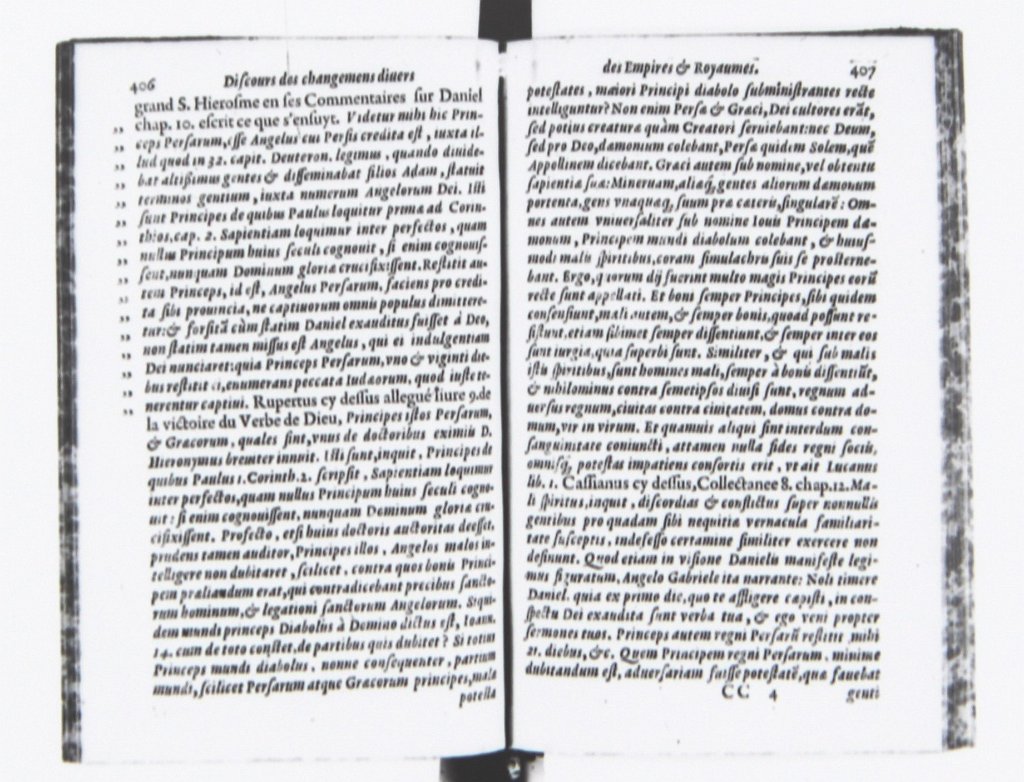 406 Discours des changemens diuers
grand S. Hierosme en ses Commentaires sur Daniel
chap. 10. escrit ce que s'ensuyt. Videtur mihi hic Prin-
ceps Persarum, esse Angelus cui Persis credita est, iuxta il-
lud quod in 32. capit. Deuteron. legimus, quando diuide-
bat altissimus gentes & disseminabat filios Adam, statuit
terminos gentium, iuxta numerum Angelorum Dei. Isti
sunt Principes de quibus Paulus loquitur prima ad Corin-
thios, cap. 2. Sapientiam loquimur inter perfectos, quam
nullus Principum huius seculi cognouit, si enim cognouis-
sent, nunquam Dominum gloriæ crucifixissent. Restitit au-
tem Princeps, id est, Angelus Persarum, faciens pro credi-
ta sibi prouincia, ne captiuorum omnis populus dimittere-
tur: & forsitã cùm statim Daniel exauditus fuisset à Deo,
non statim tamen missus est Angelus, qui ei indulgentiam
Dei nunciaret: quia Princeps Persarum, vno & viginti die-
bus restitit ei, enumerans peccata Iudæorum, quod iuste te-
nerentur captiui. Rupertus cy dessus allegué liure 9. de
la victoire du Verbe de Dieu, Principes istos Persarum,
& Græcorum, quales sint, vnus de doctoribus eximiis D.
Hieronymus breuiter innuit. Isti sunt, inquit, Principes de
quibus Paulus 1. Corinth. 2. scripsit, Sapientiam loquimur
inter perfectos, quam nullus Principum huius seculi cogno-
uit: si enim cognouissent, nunquam Dominum gloriæ cru-
cifixissent. Profecto, etsi huius doctoris auctoritas deesset,
prudens tamen auditor, Principes illos, Angelos malos in-
telligere non dubitaret, scilicet, contra quos bonis Princi-
pem præliandum erat, qui contradicebant precibus sancto-
rum hominum, & legationi sanctorum Angelorum. Siqui-
dem mundi princeps Diabolus à Domino dictus est, Ioann.
14. cum de toto constet, de partibus quis dubitet? Si totius
Princeps mundi diabolus, nonne consequenter, partium
mundi, scilicet Persarum atque Græcorum principes, malæ
potesta
des Empires & Royaumes. 407
potestates, maiori Principi diabolo subministrantes recte
intelliguntur? Non enim Persæ & Græci, Dei cultores erãt,
sed potius creaturæ quàm Creatori seruiebant: nec Deum,
sed pro Deo, dæmonium colebant, Persæ quidem Solem, quẽ
Appollinem dicebant. Græci autem sub nomine, vel obtentu
sapientiæ suæ: Mineruam, aliaq́, gentes aliorum dæmonum
portenta, gens vnaquæq́, suum præ cæteris, singularẽ: Om-
nes autem vniuersaliter sub nomine Iouis Principem dæ-
monum, Principem mundi diabolum colebant, & huius-
modi malis spiritibus, coram simulachris suis se prosterne-
bant. Ergo, quorum dij fuerint multo magis Principes eorũ
recte sunt appellati. Et boni semper Principes, sibi quidem
consensiunt, mali autem, & semper bonis, quoad possunt re-
sistunt, etiam sibimet semper dissentiunt, & semper inter eos
sunt iurgia, quia superbi sunt. Similiter, & qui sub malis
istis spiritibus, sunt homines mali, semper à bonis dissentiũt,
& nihilominus contra semetipsos diuisi sunt, regnum ad-
uersus regnum, ciuitas contra ciuitatem, domus contra do-
mum, vir in virum. Et quamuis aliqui sint interdum con-
sanguinitate coniuncti, attamen nulla fides regni sociis,
omnisq́, potestas impatiens consortis erit, vt ait Lucanus
lib. 1. Cassianus cy dessus, Collectanee 8. chap. 12. Ma-
li spiritus, inquit, discordias & conflictus super nonnullis
gentibus pro quadam sibi nequitia vernacula familiari-
tate susceptis, indefesso certamine similiter exercere non
desinunt. Quod etiam in visione Danielis manifeste legi-
mus figuratum, Angelo Gabriele ita narrante: Noli timere
Daniel. quia ex primo die, quo te affligere cœpisti, in con-
spectu Dei exaudita sunt verba tua, & ego veni propter
sermones tuos. Princeps autem regni Persarũ restitit mihi
21. diebus, &c. Quem Principem regni Persarum, minime
dubitandum est, aduersariam fuisse potestatẽ, quæ fauebat
CC 4 genti